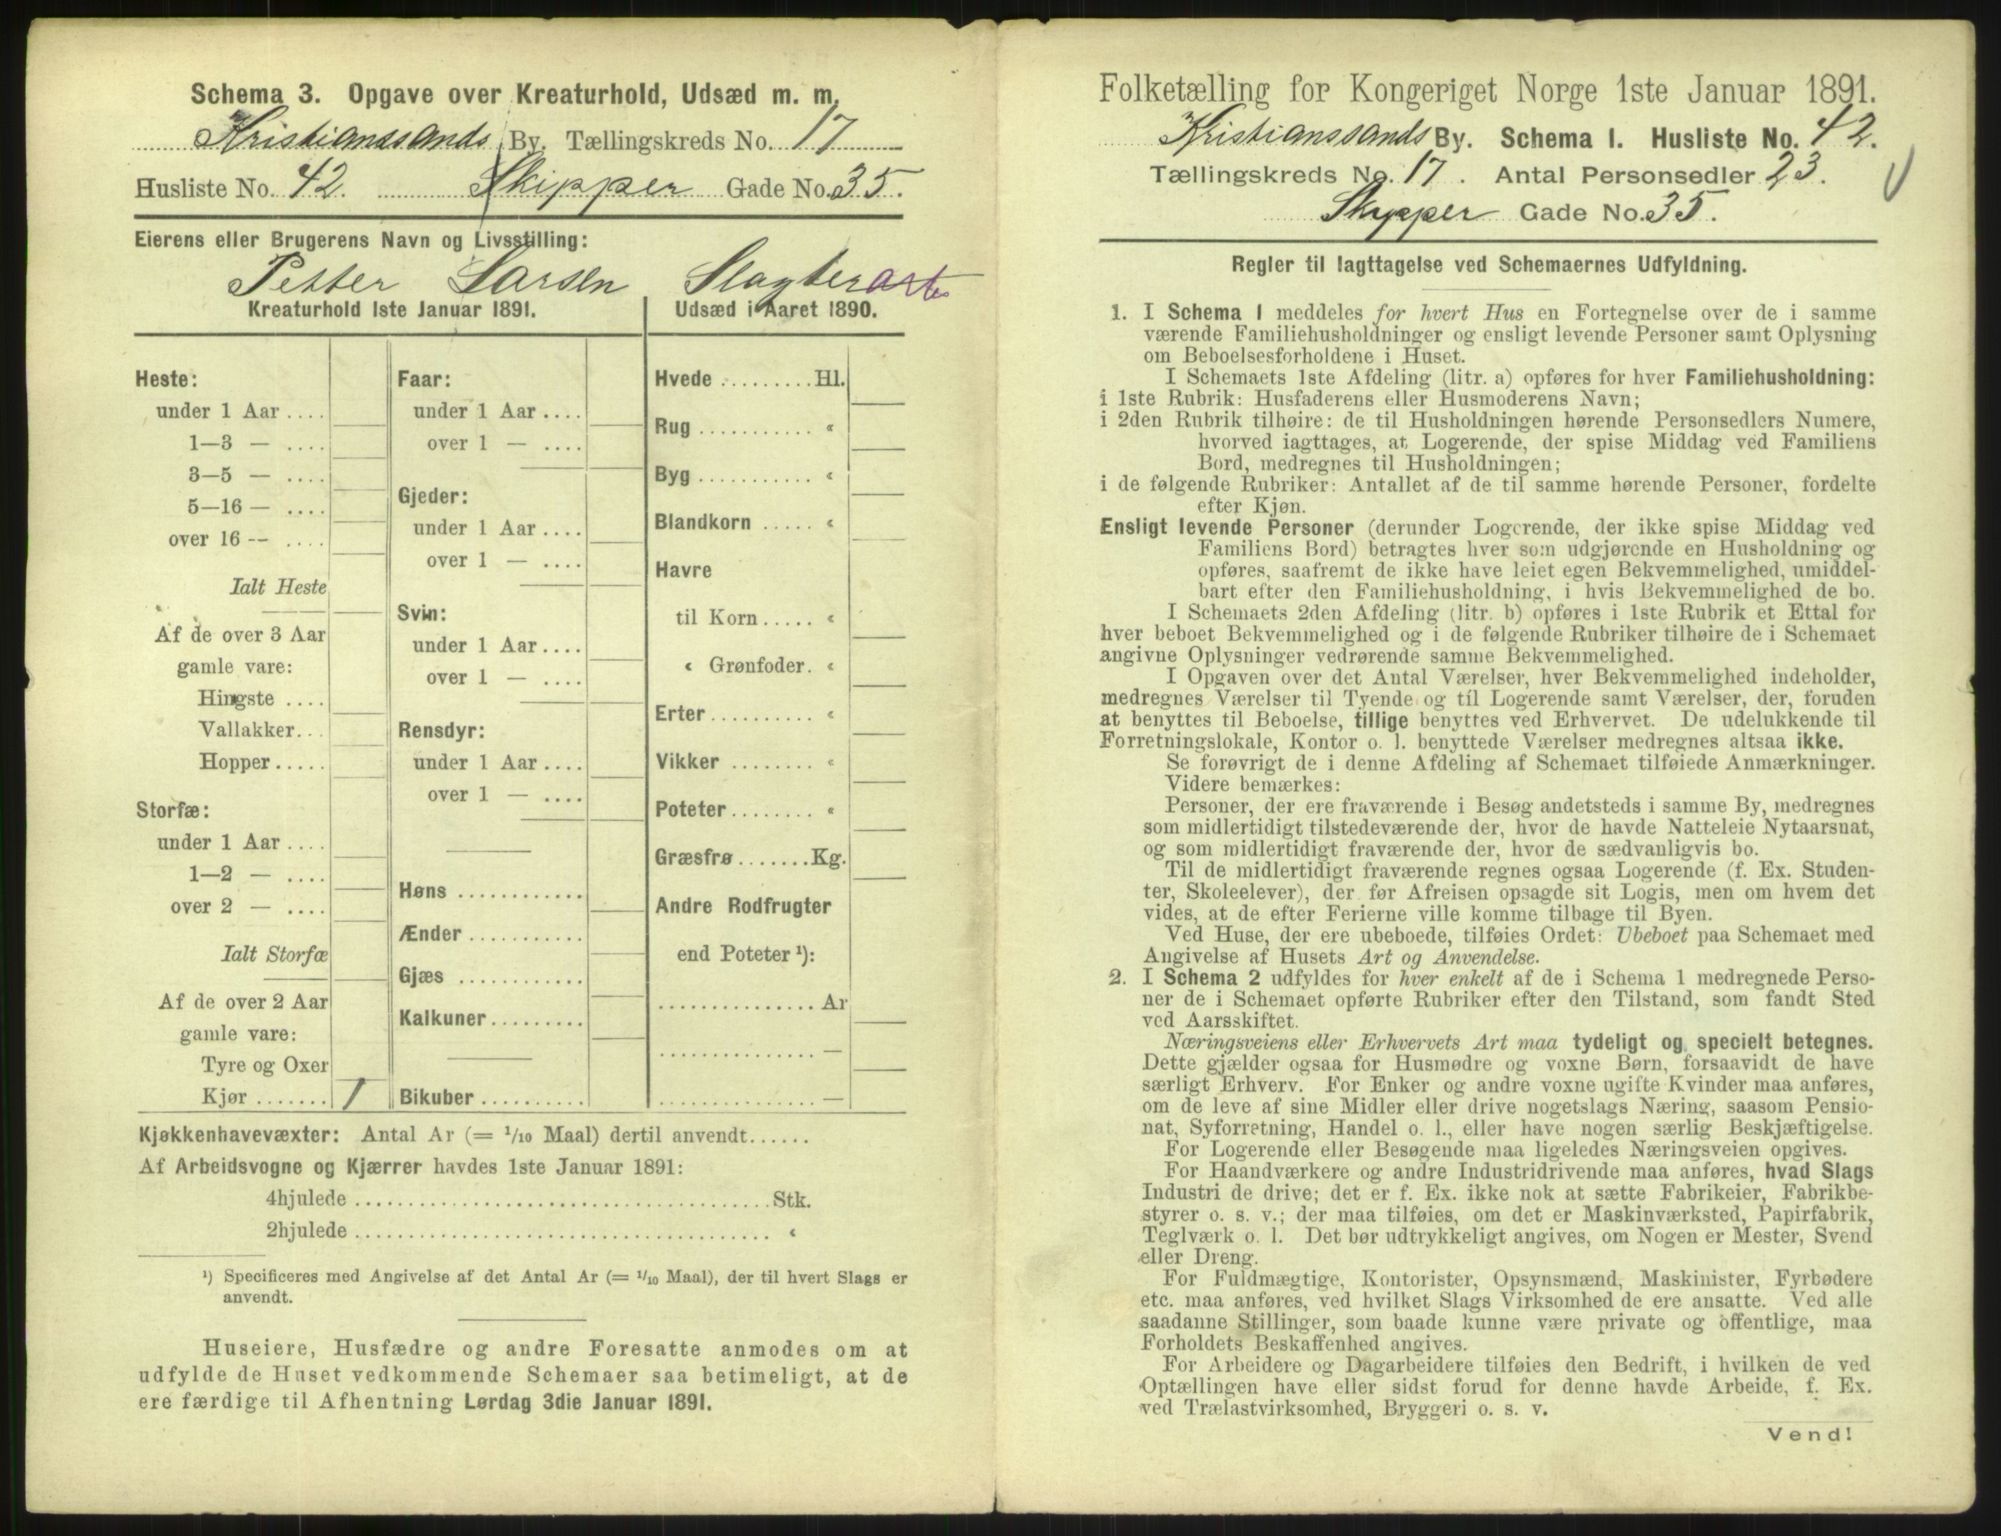 Schema 3. Opgave over Kreaturhold, Udsæd m. m.
Kristianssands By. Tællingskreds No. 17
Husliste No. 42. Skipper Gade No. 35.
Eierens eller Brugerens Navn og Livsstilling:
Petter Larsen Slagter
Kreaturhold 1ste Januar 1891.
Heste:
under 1 Aar ....
1—3 — ....
3—5 — ....
5—16 — ....
over 16 — ....
Ialt Heste
Af de over 3 Aar
gamle vare:
Hingste ....
Vallakker...
Hopper .....
Storfæ:
under 1 Aar ....
1—2 — ....
over 2 — ....
Ialt Storfæ
Af de over 2 Aar
gamle vare:
Tyre og Oxer
Kjør ....... 1
Faar:
under 1 Aar ....
over 1 — ....
Gjeder:
under 1 Aar ....
over 1 — ....
Svin:
under 1 Aar ....
over 1 — ....
Rensdyr:
under 1 Aar ....
over 1 — ....
Høns ...........
Ænder ..........
Gjæs ...........
Kalkuner.........
Bikuber ..........
Udsæd i Aaret 1890.
Hvede .........Hl.
Rug ........... «
Byg ........... «
Blandkorn ..... «
Havre
til Korn ..... «
« Grønfoder. «
Erter.......... «
Vikker ........ «
Poteter ........ «
Græsfrø .......Kg.
Andre Rodfrugter
end Poteter ¹):
............... Ar
............... —
............... —
Kjøkkenhavevæxter: Antal Ar (= 1/10 Maal) dertil anvendt......
Af Arbeidsvogne og Kjærrer havdes 1ste Januar 1891:
4hjulede ..................................... Stk.
2hjulede ..................................... «
¹) Specificeres med Angivelse af det Antal Ar (= 1/10 Maal), der til hvert Slags er
anvendt.
Huseiere, Husfædre og andre Foresatte anmodes om at
udfylde de Huset vedkommende Schemaer saa betimeligt, at de
ere færdige til Afhentning Lørdag 3die Januar 1891.
Folketælling for Kongeriget Norge 1ste Januar 1891.
Kristianssands By. Schema I. Husliste No. 42.
Tællingskreds No. 17. Antal Personsedler 23.
Skypper Gade No. 35.
Regler til Iagttagelse ved Schemaernes Udfyldning.
1. I Schema I meddeles for hvert Hus en Fortegnelse over de i samme
værende Familiehusholdninger og ensligt levende Personer samt Oplysning
om Beboelsesforholdene i Huset.
I Schemaets 1ste Afdeling (litr. a) opføres for hver Familiehusholdning:
i 1ste Rubrik: Husfaderens eller Husmoderens Navn;
i 2den Rubrik tilhøire: de til Husholdningen hørende Personsedlers Numere,
hvorved iagttages, at Logerende, der spise Middag ved Familiens
Bord, medregnes til Husholdningen;
i de følgende Rubriker: Antallet af de til samme hørende Personer, fordelte
efter Kjøn.
Ensligt levende Personer (derunder Logerende, der ikke spise Middag ved
Familiens Bord) betragtes hver som udgjørende en Husholdning og
opføres, saafremt de ikke have leiet egen Bekvemmelighed, umiddel-
bart efter den Familiehusholdning, i hvis Bekvemmelighed de bo.
I Schemaets 2den Afdeling (litr. b) opføres i 1ste Rubrik et Ettal for
hver beboet Bekvemmelighed og i de følgende Rubriker tilhøire de i Schemaet
angivne Oplysninger vedrørende samme Bekvemmelighed.
I Opgaven over det Antal Værelser, hver Bekvemmelighed indeholder,
medregnes Værelser til Tyende og til Logerende samt Værelser, der, foruden
at benyttes til Beboelse, tillige benyttes ved Erhvervet. De udelukkende til
Forretningslokale, Kontor o. l. benyttede Værelser medregnes altsaa ikke.
Se forøvrigt de i denne Afdeling af Schemaet tilføiede Anmærkninger.
Videre bemærkes:
Personer, der ere fraværende i Besøg andetsteds i samme By, medregnes
som midlertidigt tilstedeværende der, hvor de havde Natteleie Nytaarsnat,
og som midlertidigt fraværende der, hvor de sædvanligvis bo.
Til de midlertidigt fraværende regnes ogsaa Logerende (f. Ex. Studen-
ter, Skoleelever), der før Afreisen opsagde sit Logis, men om hvem det
vides, at de efter Ferierne ville komme tilbage til Byen.
Ved Huse, der ere ubeboede, tilføies Ordet: Ubeboet paa Schemaet med
Angivelse af Husets Art og Anvendelse.
2. I Schema 2 udfyldes for hver enkelt af de i Schema 1 medregnede Perso-
ner de i Schemaet opførte Rubriker efter den Tilstand, som fandt Sted
ved Aarsskiftet.
Næringsveiens eller Erhvervets Art maa tydeligt og specielt betegnes.
Dette gjælder ogsaa for Husmødre og voxne Børn, forsaavidt de have
særligt Erhverv. For Enker og andre voxne ugifte Kvinder maa anføres,
om de leve af sine Midler eller drive nogetslags Næring, saasom Pensio-
nat, Syforretning, Handel o. l., eller have nogen særlig Beskjæftigelse.
For Logerende eller Besøgende maa ligeledes Næringsveien opgives.
For Haandværkere og andre Industridrivende maa anføres, hvad Slags
Industri de drive; det er f. Ex. ikke nok at sætte Fabrikeier, Fabrikbe-
styrer o. s. v.; der maa tilføies, om det er Maskinværksted, Papirfabrik,
Teglværk o. l. Det bør udtrykkeligt angives, om Nogen er Mester, Svend
eller Dreng.
For Fuldmægtige, Kontorister, Opsynsmænd, Maskinister, Fyrbødere
etc. maa anføres, ved hvilket Slags Virksomhed de ere ansatte. Ved alle
saadanne Stillinger, som baade kunne være private og offentlige, maa
Forholdets Beskaffenhed angives.
For Arbeidere og Dagarbeidere tilføies den Bedrift, i hvilken de ved
Optællingen have eller sidst forud for denne havde Arbeide, f. Ex.
ved Trælastvirksomhed, Bryggeri o. s. v.
Vend!